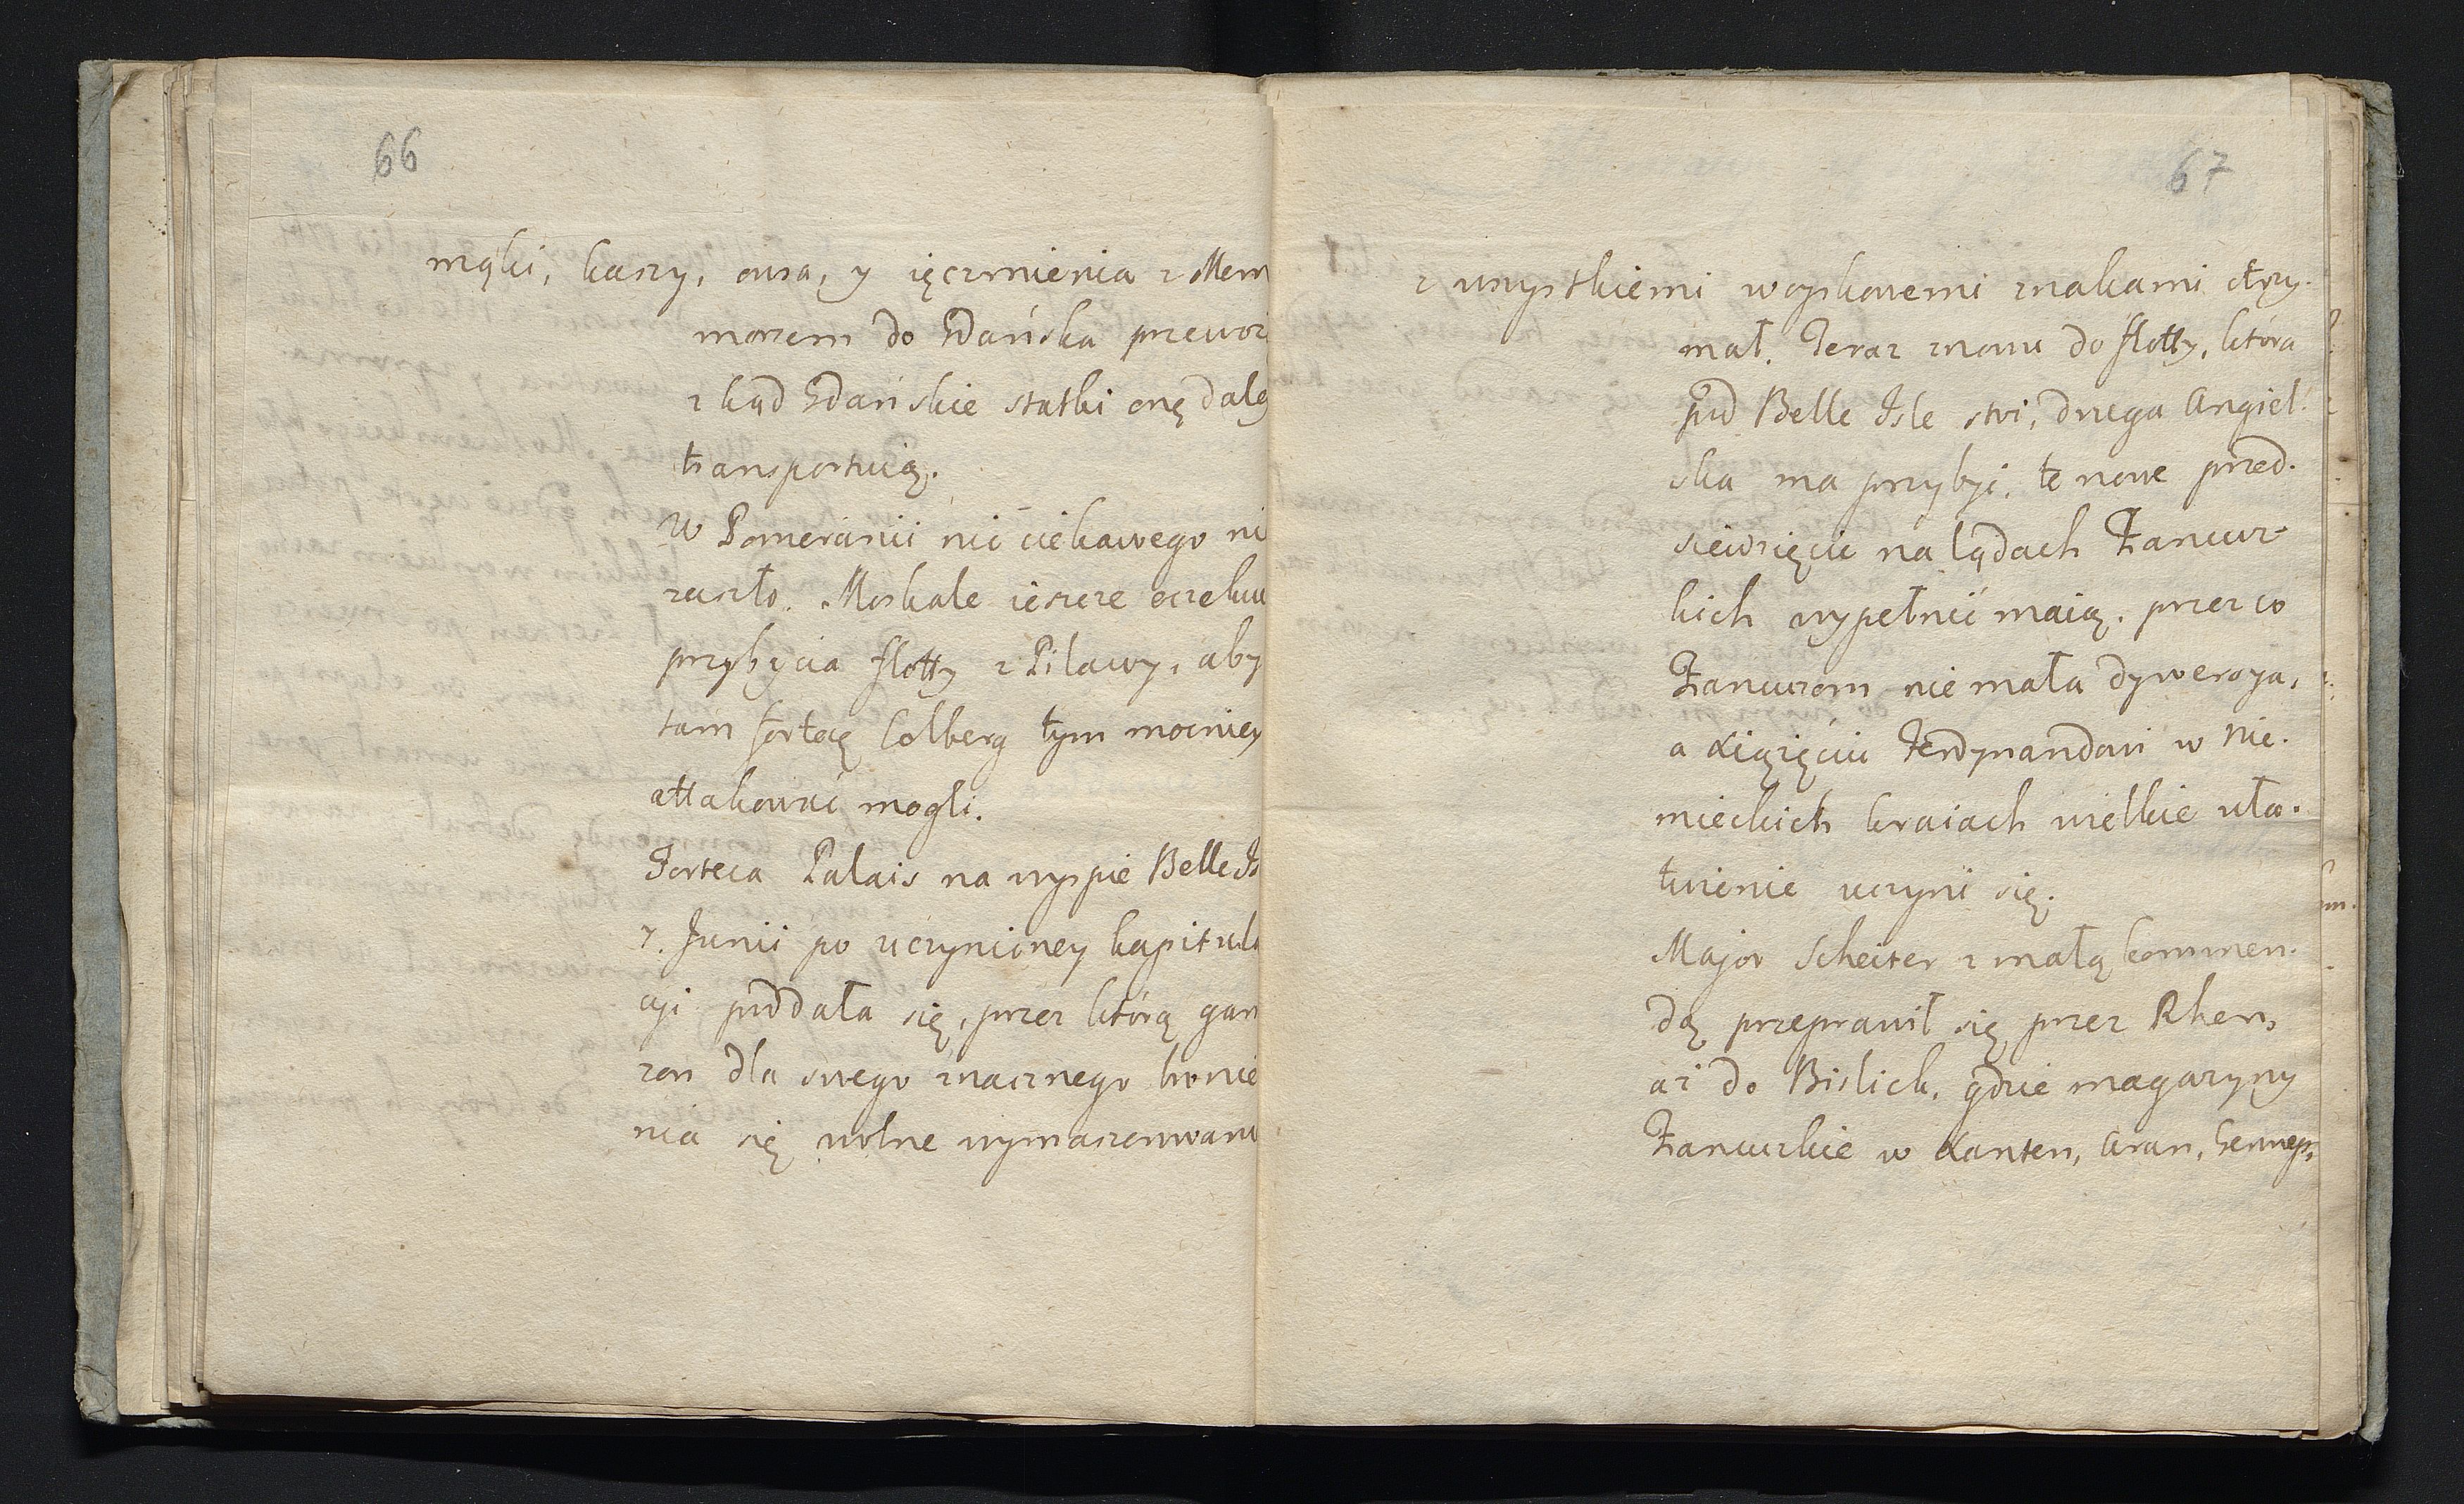 66
mąki, kaszy, owsa, y ięczmienia z Mem
morzem do Gdańska przewoz
z kąd Gdańskie statki onę daley
transportuią.
W Pomeranii nic ciekawego ni
zaszło. Moskale ieszcze oczekuu
przybycia flotty z Pilawy, aby
tam fortecę Colberg tym mocniey
attakować mogli.
Forteca Palais na wyspie Belle Is
7. Junii po uczynioney kapitula
cyi poddała się, przez którą garn
zon dla swego znacznego bronie
nia się wolne wymaszerowani
67
z wszystkiemi woyskowemi znakami otrzy-
mał. Teraz znowu do flotty, która
pod Belle Isle stoi, druga Angiel-
ska ma przybyć, te nowe przed-
siewzięcie na lądach Francuz-
kich wypełnić maią. przez co
Francuzom nie mała dywersya,
a Xiążęciu Ferdynandowi w Nie-
mieckich kraiach wielkie uła-
twienie uczyni się.
Major Scheiter z małą kommen-
dą przeprawił się przez Rhen,
aż do Bislich, gdzie magazyny
Francuzkie w Xanten, Aran, Gennep,